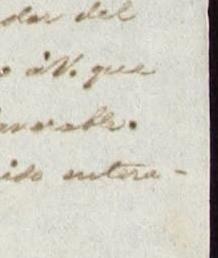 dor del
à V. que
avorable.
ido entera-